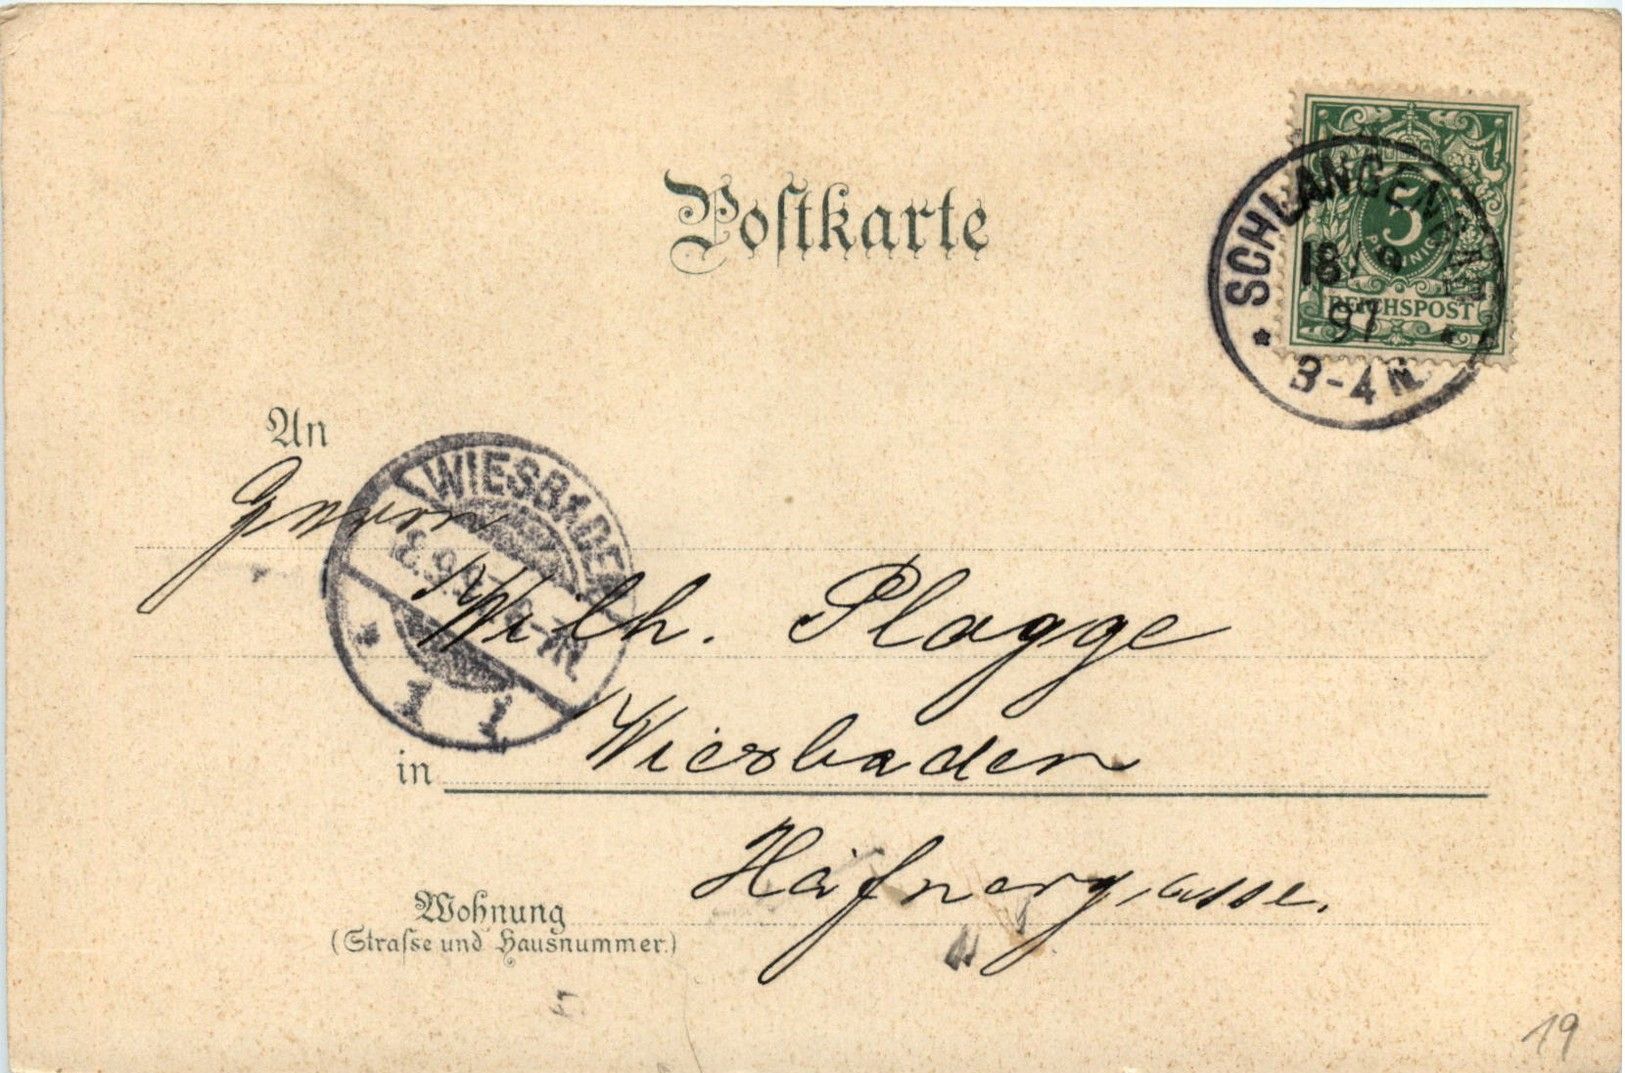 Postkarte
SCHLANGENBAD
18/9
97
3-4N.
5
PFENNIG
REICHSPOST
An
Herrn
WIESBADEN
18.9.97.
1 1
Wilh. Plagge
in Wiesbaden
Häfnergasse.
Wohnung
(Straſse und Hausnummer.)
19